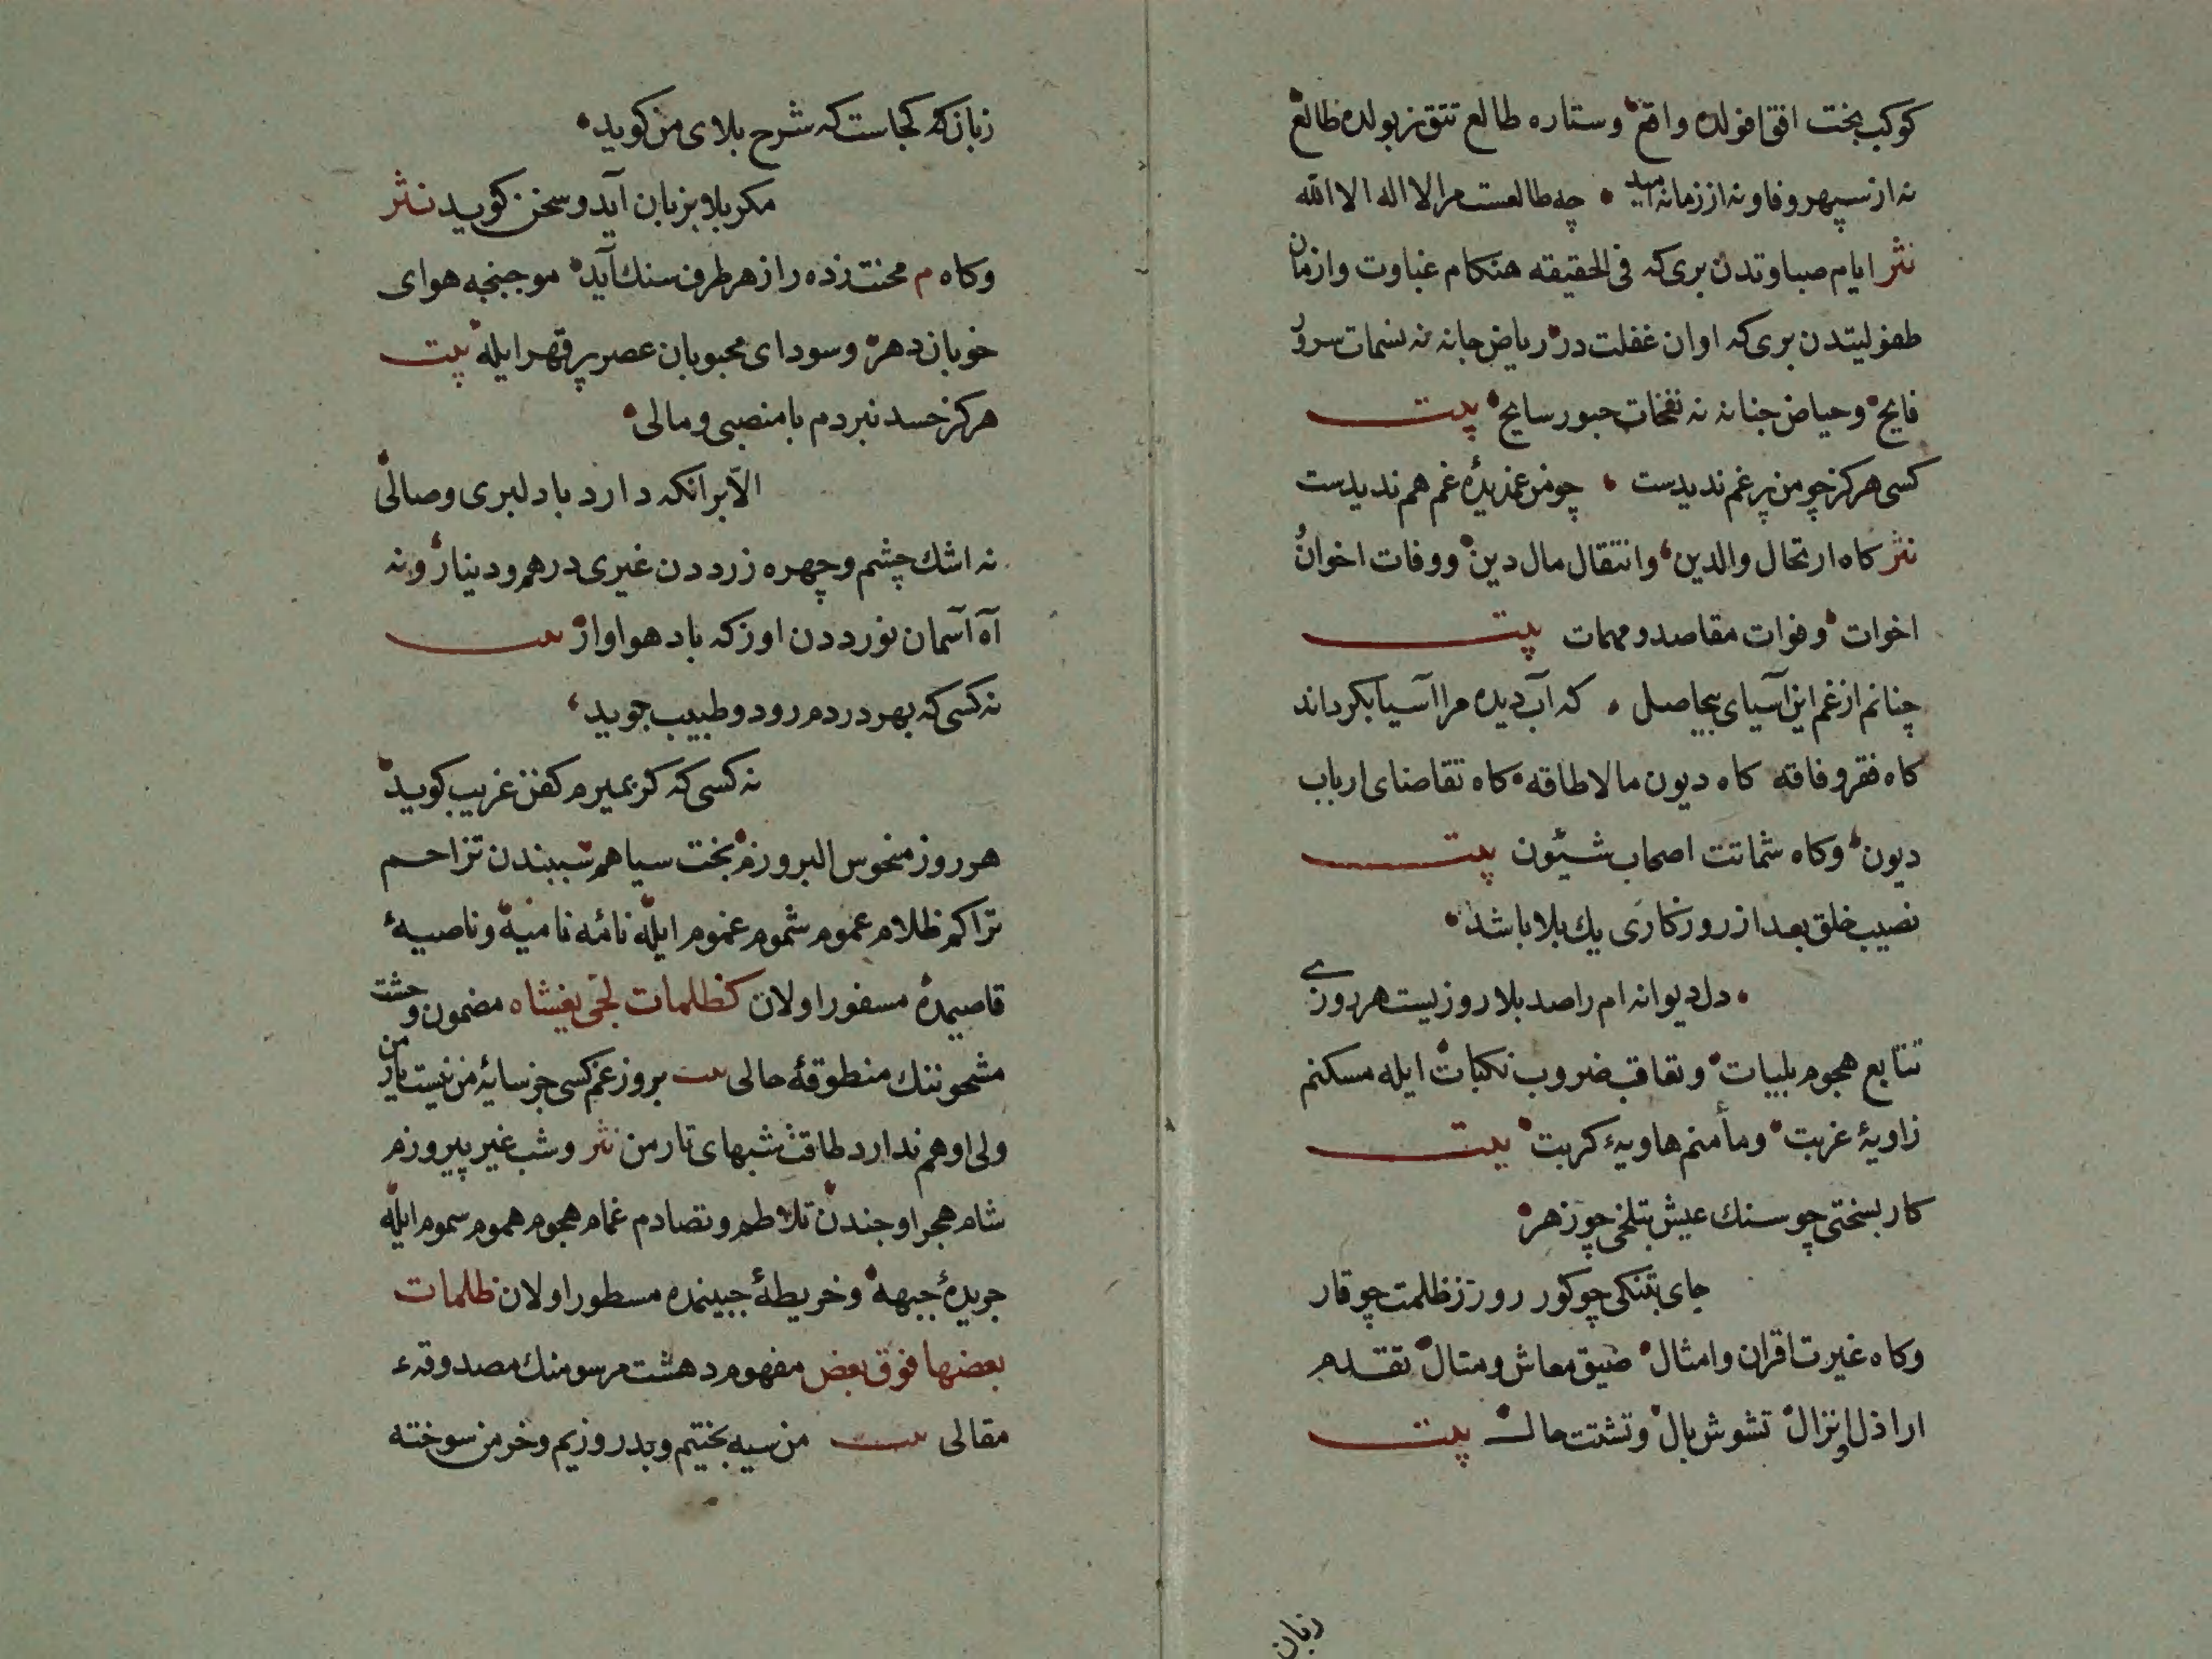 كوكب بخت افق افولده واقع وستاره طالع تتق زبولده ظالع
نه از سپهر وفا ونه از زمانه امید چه طالعست مرا لا اله الا الله
نثر ایام صباوتدن بری که فی الحقیقه هنکام غباوت وازمان
طفولیتدن بری که اوان غفلت در ریاض جانه نه نسمات سرور
فایح وحیاض جنانه نه نفخات حبور سایح بیت
کسی هرکز چو من پر غم ندیدست چو من غمدیدۀ غم هم ندیدست
نثر کاه ارتحال والدین وانتقال مال دین ووفات اخوان و
اخوات وفوات مقاصد ومهمات بیت
چنانم از غم این آسیای بیحاصل که آب دیده مرا آسیا بکرداند
کاه فقر وفاقه کاه دیون مالا طاقه کاه تقاضای ارباب
دیون وکاه شماتت اصحاب شئون بیت
نصیب خلق بعد از روزکاری یك بلا باشد
دل دیوانه ام را صد بلا روزیست هر روزی
تتابع هجوم بلیات وتعاقب ضروب نکبات ایله مسکنم
زاویۀ غربت ومأمنم هاویۀ کربت بیت
کار بسختی چو سنك عیش بتلخی چو زهر
جای بتنکی چو کور روز ز ظلمت چو قار
وکاه غیرت اقران وامثال ضیق معاش ومنال تقدم
اراذل وانزال تشوش بال وتشتت حال بیت
زبان
زبان که کجاست که شرح بلای من کوید
مکر بلا بزبان آید وسخن کوید نثر
وکاه م محنت زده را از هر طرف سنك آید موجبنجه هوای
خوبان دهر وسودای محبوبان عصر پر قهر ایله بیت
هرکز حسد نبردم با منصبی ومالی
الا بر انکه دارد با دلبری وصالی
نه اشك چشم وچهره زرددن غیری درهم ودینار ونه
آه آسمان نورددن اوزکه باد هوا وار بیت
نه کسی که بهر دردم رود وطبیب جوید
نه کسی که کر بمیرم کفن غریب کوید
هر روز منحوس البروزم بخت سیاهم سببندن تزاحم
تراکم ظلام عموم شموم غموم ایله نائمه نامیه وناصیۀ
قاصیمده مسفور اولان کظلمات لجی یغشاه مضمون وحشت
مشحوننك منطوقۀ حالی بیت بروز غم کسی جز سایۀ من نیست یار من
ولی او هم ندارد طاقت شبهای تار من نثر وشب غیر پیروزم
شام هجر اوجندن تلاطم وتصادم غمام هجوم هموم سموم ایله
جریدۀ جبهه وخریطۀ جبینمده مسطور اولان ظلمات
بعضها فوق بعض مفهوم دهشت مرسومنك مصدوقۀ
مقالی بیت من سیه بختیم وبد روزیم وخرمن سوخته